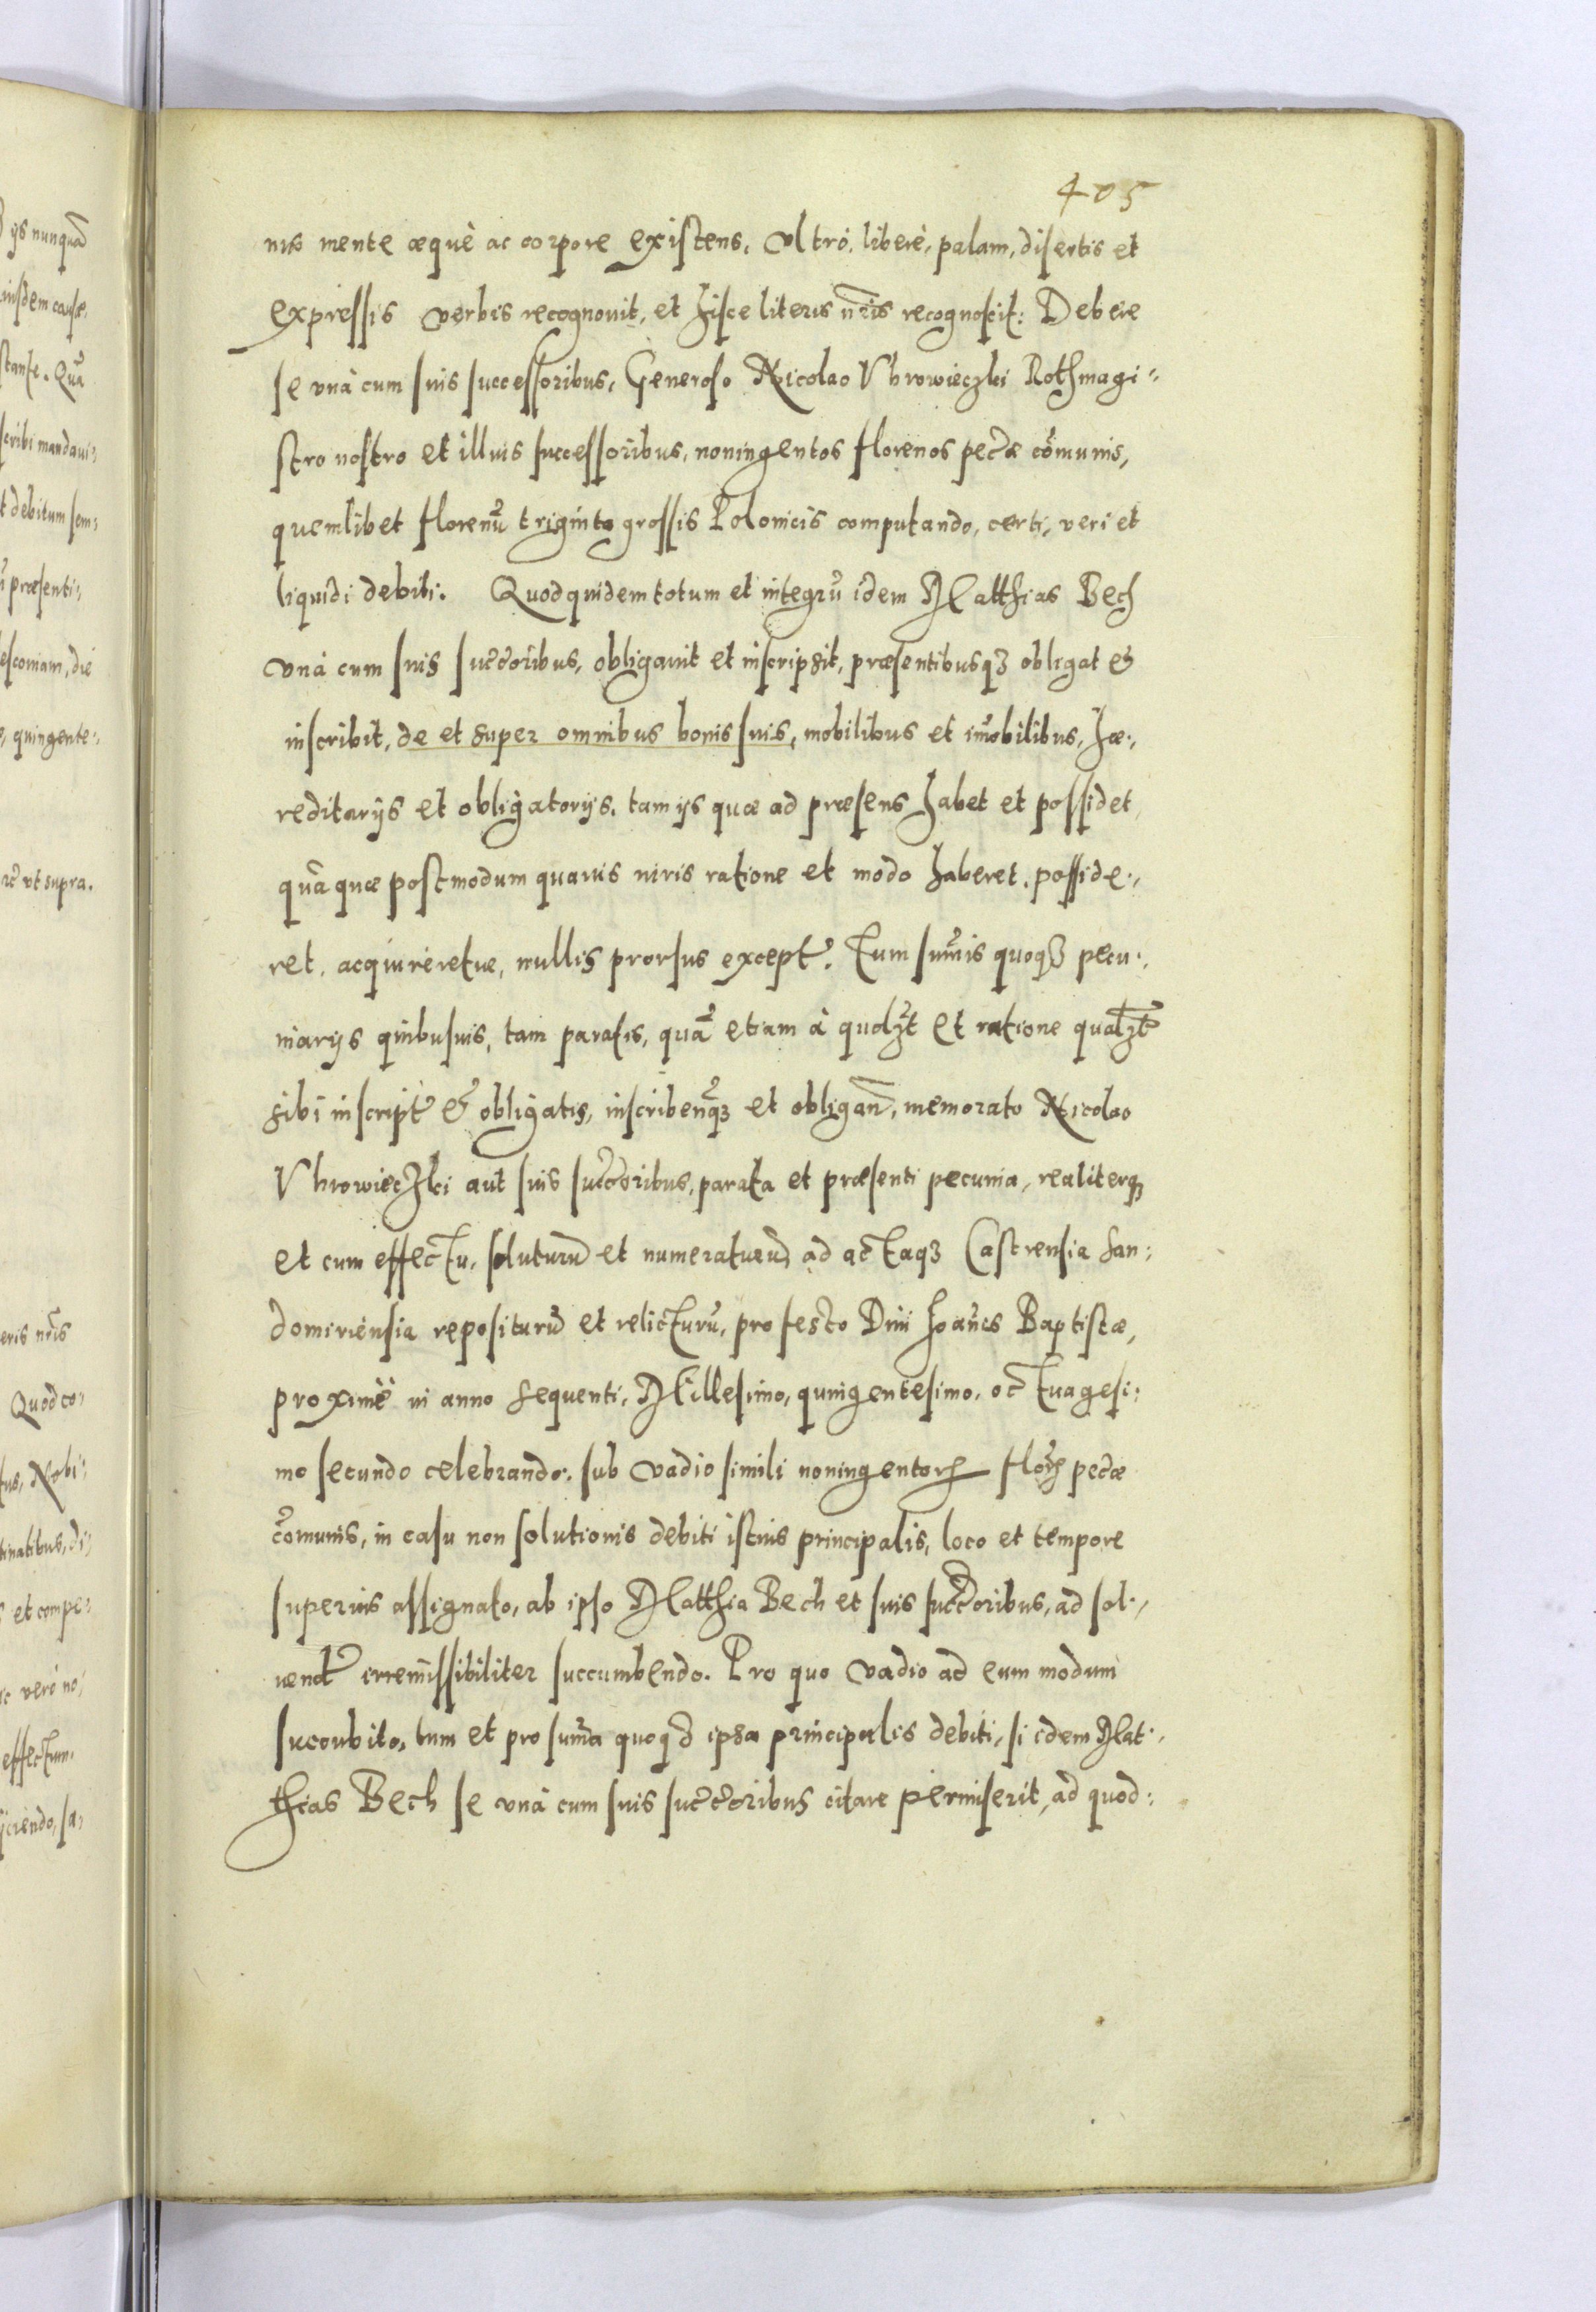 405
nus mente æquè ac corpore existens, vltrò, liberè, palam, disertis et
expressis verbis recognouit, et hisce literis nr̃is recognoscit: Debere
se vnà cum suis successoribus, Generoso Nicolao Vhrowieczki Rothmagi-
stro nostro et illius successoribus, noningentos florenos pec̃æ cõmunis,
quemlibet florenũ triginta grossis Polonicis computando, certi, veri et
liquidi debiti. Quodquidem totum et integrũ idem Matthias Bech
vnà cum suis succ̃oribus, obligauit et inscripsit, præsentibusqȝ obligat &
inscribit, de et super omnibus bonis suis, mobilibus et im̃obilibus, hæ-
reditarijs et obligatorijs, tam ijs quæ ad præsens habet et possidet,
quã quæ postmodum quauis iuris ratione et modo haberet, posside-
ret, acquireretue, nullis prorsus except̃. Tum sum̃is quoqȝ pecu-
niarijs quibusuis, tam paratis, quã etiam à quolȝt et ratione qualȝt
sibi inscript̃ & obligatis, inscribeñqȝ et obligañ, memorato Nicolao
Vhrowieczki aut suis succ̃oribus, parata et præsenti pecunia, realiterqȝ
et cum effectu, soluturũ et numeraturũ, ad actaqȝ Castrensia San-
domiriensia repositurũ et relicturũ, pro festo Diui Ioañis Baptistæ,
proximè in anno sequenti, Millesimo, quingentesimo, octuagesi-
mo secundo celebrando. sub vadio simili noningentorꝝ florꝝ pec̃æ
cõmunis, in casu non solutionis debiti istius principalis, loco et tempore
superius assignato, ab ipso Matthia Bech et suis succ̃oribus, ad sol-
uend̃ irremissibiliter succumbendo. Pro quo vadio ad eum modum
succubito, tum et pro sum̃a quoqȝ ipsa principalis debiti, si idem Mat-
thias Bech se vnà cum suis succ̃oribus citare permiserit, ad quod-